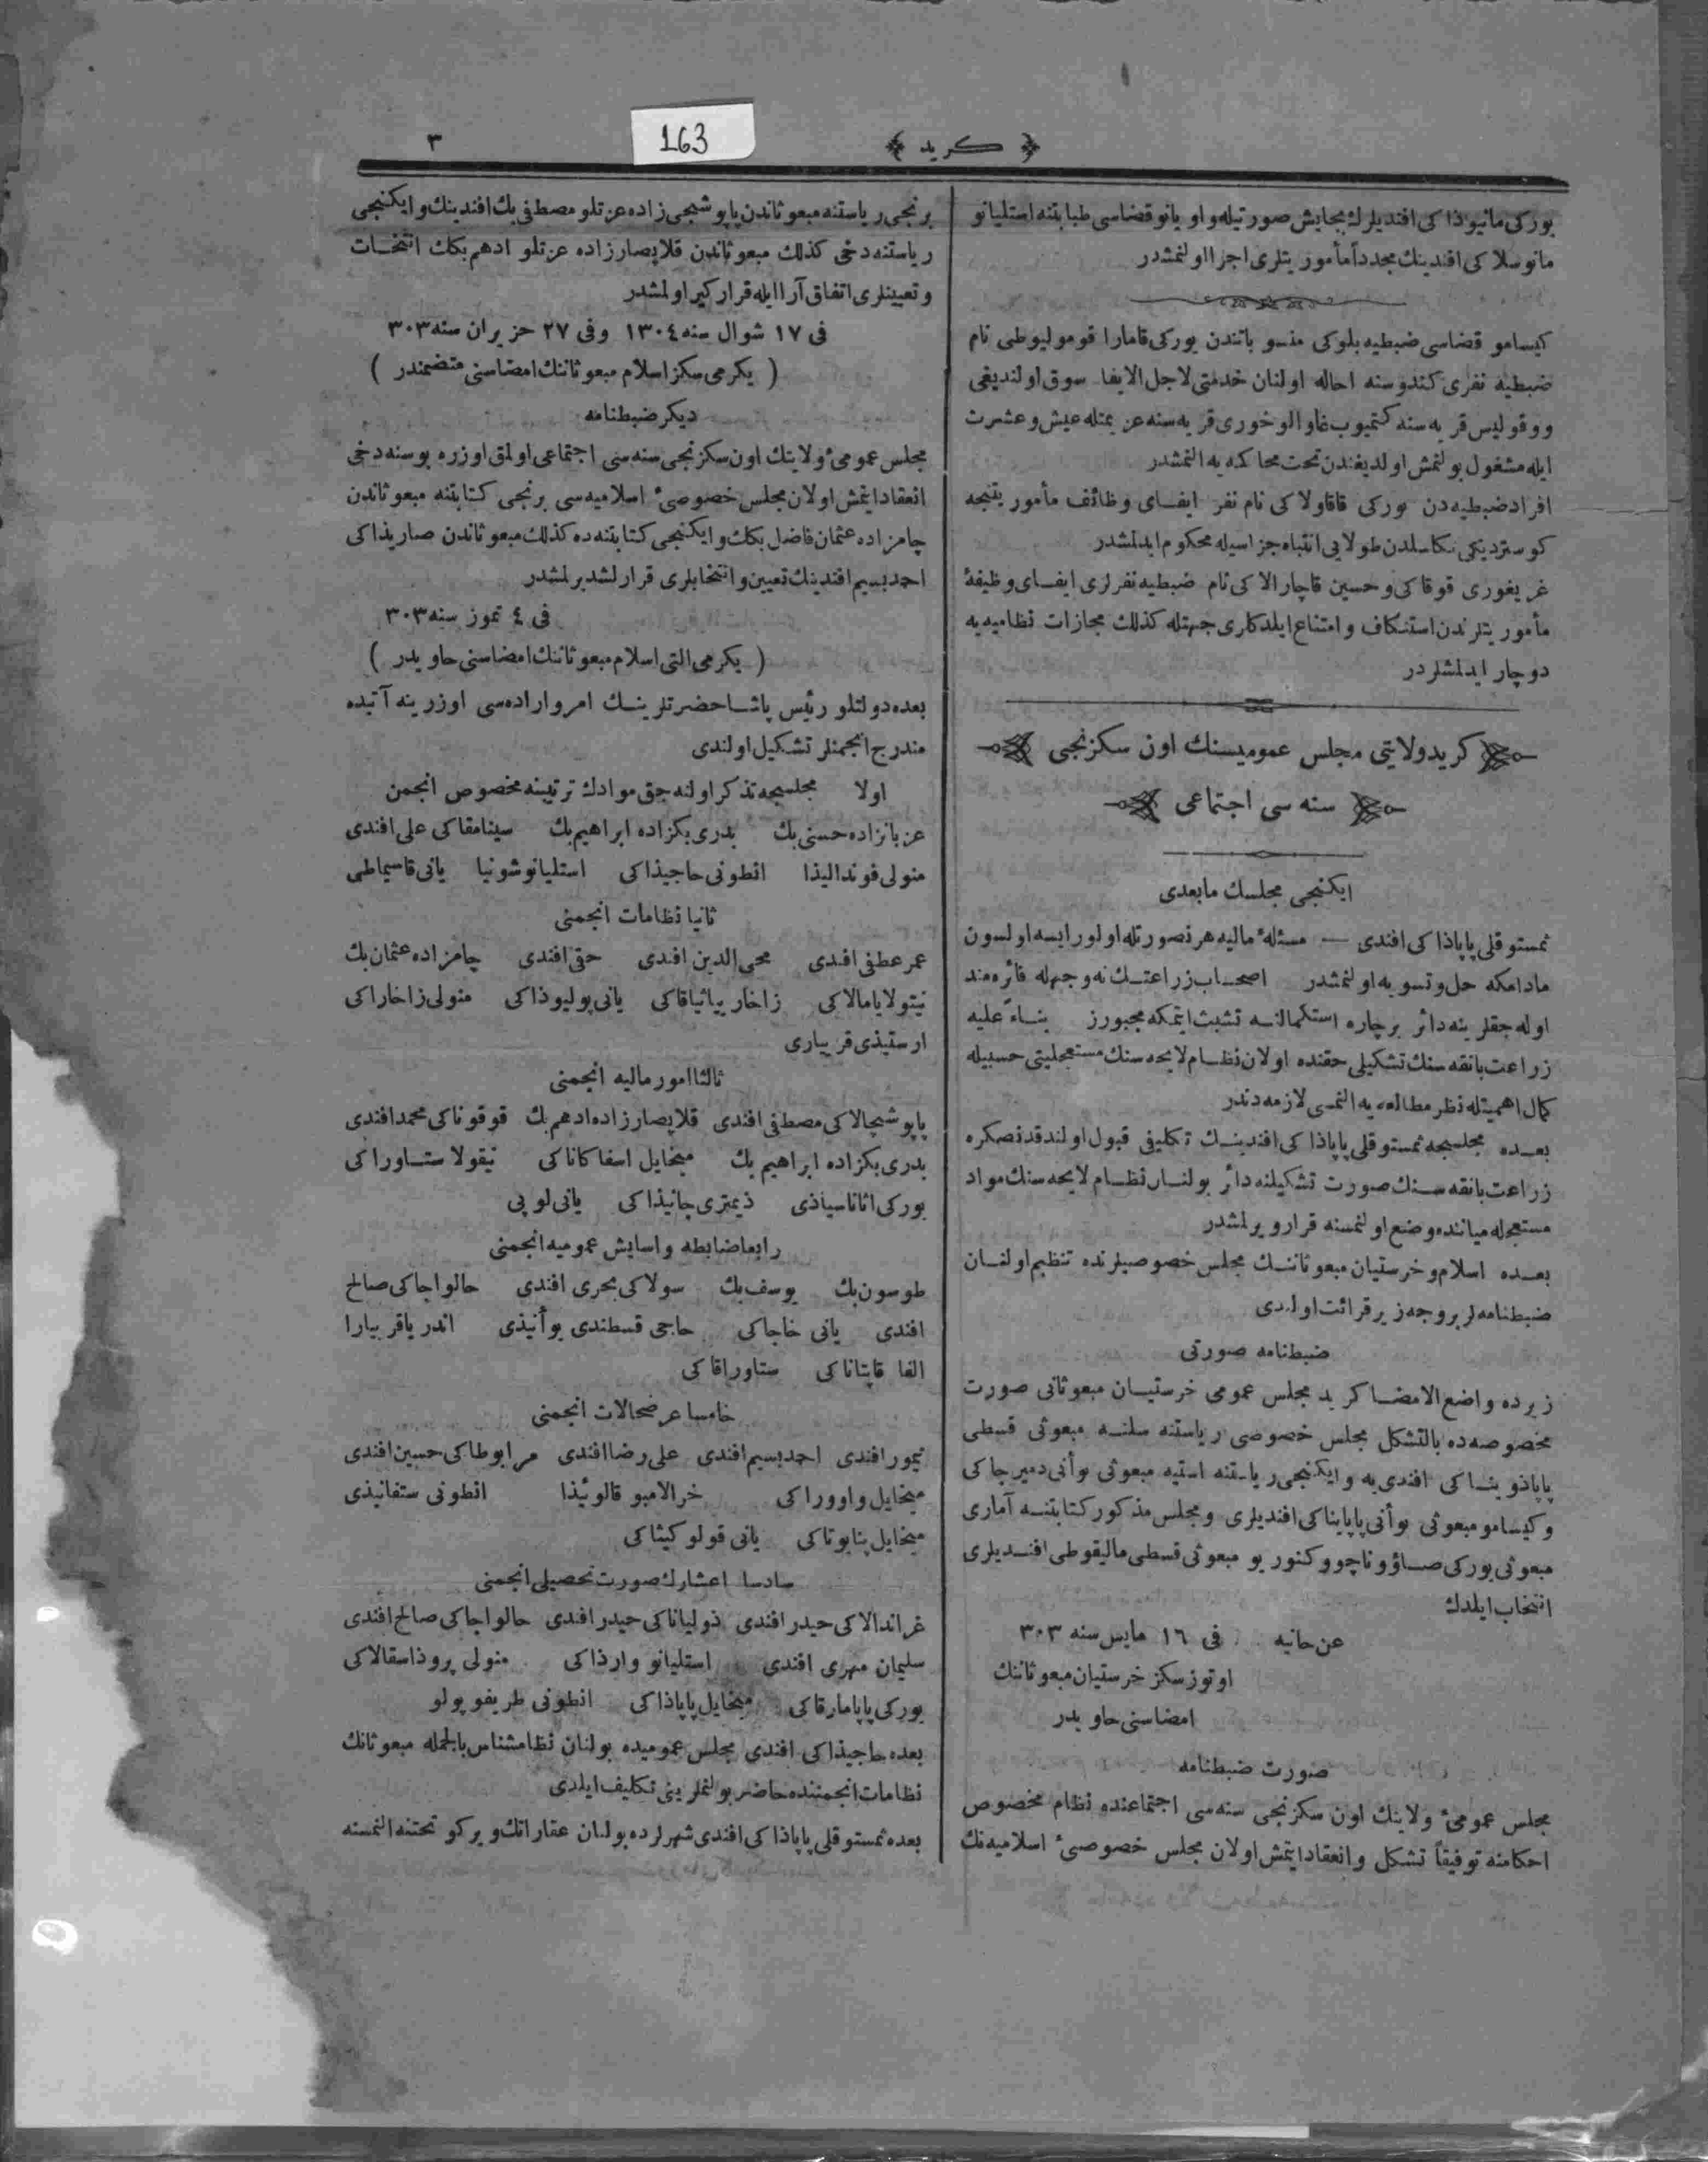 163
﴿ كريد ﴾
٣
يوركى مانيوذاكى افنديلرك بجايش صورتيله و اويانو قضاسى طبابتنه استليانو
مانوسلاكى افندينك مجدداً مأموريتلرى اجرا اولنمشدر
كيسامو قضاسى ضبطيه بلوكى منسوباتندن يوركى قامارا قومولیوطى نام
ضبطيه نفرى كندوسنه احاله اولنان خدمتى لاجل الايفا سوق اولنديغى
ووقوليس قريه سنه كتميوب غاوالوخورى قريه سنه عزيمتله عيش و عشرت
ايله مشغول بولنمش اولديغندن تحت محاكمه يه النمشدر
افراد ضبطيه دن يوركى قاقاولاكى نام نفر ايفاى وظائف مأموريتنجه
كوسترديكى تكاسلدن طولايى انتباه جزاسيله محكوم ايدلمشدر
غريغورى قوقاكى و حسين قاچارالاكى نام ضبطيه نفرلرى ايفاى وظيفهٔ
مأموريتلرندن استنكاف و امتناع ايلدكلرى جهتله كذلك مجازات نظاميه يه
دوچار ايدلمشلردر
كريد ولايتى مجلس عموميسنك اون سكزنجى
سنه سى اجتماعى
ايكنجى مجلسك مابعدى
ثمستوقلى پاپاذاكى افندى — مسئلهٔ ماليه هر نصورتله اولور ايسه اولسون
مادامكه حل و تسويه اولنمشدر اصحاب زراعتك نه وجهله فائزه مند
اوله جقلرينه دائر بر چاره استكمالنه تشبث ايتمكه مجبورز بناءً عليه
زراعت بانقه سنك تشكيلى حقنده اولان نظام لايحه سنك مستعجليتى حسبيله
كمال اهميتله نظر مطالعه يه النمسى لازمه دندر
بعده مجلسجه ثمستوقلى پاپاذاكى افندينك تكليفى قبول اولندقدنصكره
زراعت بانقه سنك صورت تشكيلنه دائر بولنان نظام لايحه سنك مواد
مستعجله مياننه وضع اولنمسنه قرار ويرلمشدر
بعده اسلام و خرستيان مبعوثاننك مجلس خصوصيلرنده تنظيم اولنان
ضبطنامه لر بر وجه زير قرائت اولندى
ضبطنامه صورتى
زيرده واضع الامضا كريد مجلس عمومى خرستيان مبعوثانى صورت
مخصوصه ده بالتشكل مجلس خصوصى رياستنه سلنه مبعوثى قسطى
پاپاذوپناكى افندى يه و ايكنجى رياستنه استيه مبعوثى يوأنى دميرجاكى
و كيسامو مبعوثى يوأنى پاپايناكى افنديلرى و مجلس مذكور كتابتنه آمارى
مبعوثى يوركى صاؤوناچو و كنوريو مبعوثى قسطى ماليقوطى افنديلرى
انتخاب ايلدك
عن حانيه فى ١٦ مايس سنه ٣٠٣
اوتوز سكز خرستيان مبعوثاننك
امضاسنى حاويدر
صورت ضبطنامه
مجلس عمومىٔ ولايتك اون سكزنجى سنه سى اجتماعنده نظام مخصوص
احكامنه توفيقاً تشكل و انعقاد ايتمش اولان مجلس خصوصىٔ اسلاميه نك
برنجى رياستنه مبعوثاندن پاپوشجى زاده عزتلو مصطفى بك افندينك و ايكنجى
رياستنه دخى كذلك مبعوثاندن قلاپصارزاده عزتلو ادهم بكك انتخابات
و تعيينلرى اتفاق آرا ايله قراركير اولمشدر
فى ١٧ شوال سنه ١٣٠٤ وفى ٢٧ حزيران سنه ٣٠٣
( يكرمى سكز اسلام مبعوثاننك امضاسنى متضمندر )
ديكر ضبطنامه
مجلس عمومىٔ ولايتك اون سكزنجى سنه سى اجتماعى اولمق اوزره بو سنه دخى
انعقاد ايتمش اولان مجلس خصوصىٔ اسلاميه سى برنجى كتابتنه مبعوثاندن
چامزاده عثمان فاضل بكك و ايكنجى كتابتنه ده كذلك مبعوثاندن صاريذاكى
احمد بسيم افندينك تعيين و انتخابلرى قرارلشديرلمشدر
فى ٤ تموز سنه ٣٠٣
( يكرمى التى اسلام مبعوثاننك امضاسنى حاويدر )
بعده دولتلو رئيس پاشا حضرتلرينك امر و اراده سى اوزرينه آتيده
مندرج انجمنلر تشكيل اولندى
اولا مجلسجه تذكر اوله جق موادك ترتيبنه مخصوص انجمن
عزبانزاده حسنى بك بدرى بكزاده ابراهيم بك سينامقاكى على افندى
منولى فونداليذا انطونى حاجيذاكى استليانو شونيا يانى قاسيماطى
ثانيا نظامات انجمنى
عمر عطفى افندى محى الدين افندى حقى افندى چامزاده عثمان بك
نيقولا يامالاكى زاخاريا ثياقاكى يانى پوليوذاكى منولى زاخاراكى
ارستيذى قريبارى
ثالثا امور ماليه انجمنى
پاپوشجالاكى مصطفى افندى قلاپصارزاده ادهم بك قوقوناكى محمد افندى
بدرى بكزاده ابراهيم بك ميخايل اسفاكاناكى نيقولا ستاوراكى
يوركى اثاناسياذى ذيمترى چانيذاكى يانى لوپى
رابعا ضابطه و اسايش عموميه انجمنى
طوسون بك يوسف بك سولاكى بحرى افندى حالواجاكى صالح
افندى يانى خاجاكى حاجى قسطندى يوأنيذى اندريا قريبارا
الفا قاپتاناكى ستاوراقاكى
خامسا عرضحالات انجمنى
تيمور افندى احمد بسيم افندى على رضا افندى مرابوطاكى حسين افندى
ميخايل واووراكى خرالامبو قالوئيذا انطونى ستفانيذى
ميخايل پنايوتاكى يانى قولوكيثاكى
سادسا اعشارك صورت تحصيلى انجمنى
غراندالاكى حيدر افندى ذولياناكى حيدر افندى حالواجاكى صالح افندى
سليمان مهرى افندى استليانو وارذاكى منولى پروذاسقالاكى
يوركى پاپامارقاكى ميخايل پاپاذاكى انطونى طريفوپولو
بعده حاجيذاكى افندى مجلس عموميده بولنان نظامشناس بالجمله مبعوثانك
نظامات انجمننده حاضر بولنملرينى تكليف ايلدى
بعده ثمستوقلى پاپاذاكى افندى شهرلرده بولنان عقاراتك ويركو تحتنه النمسنه